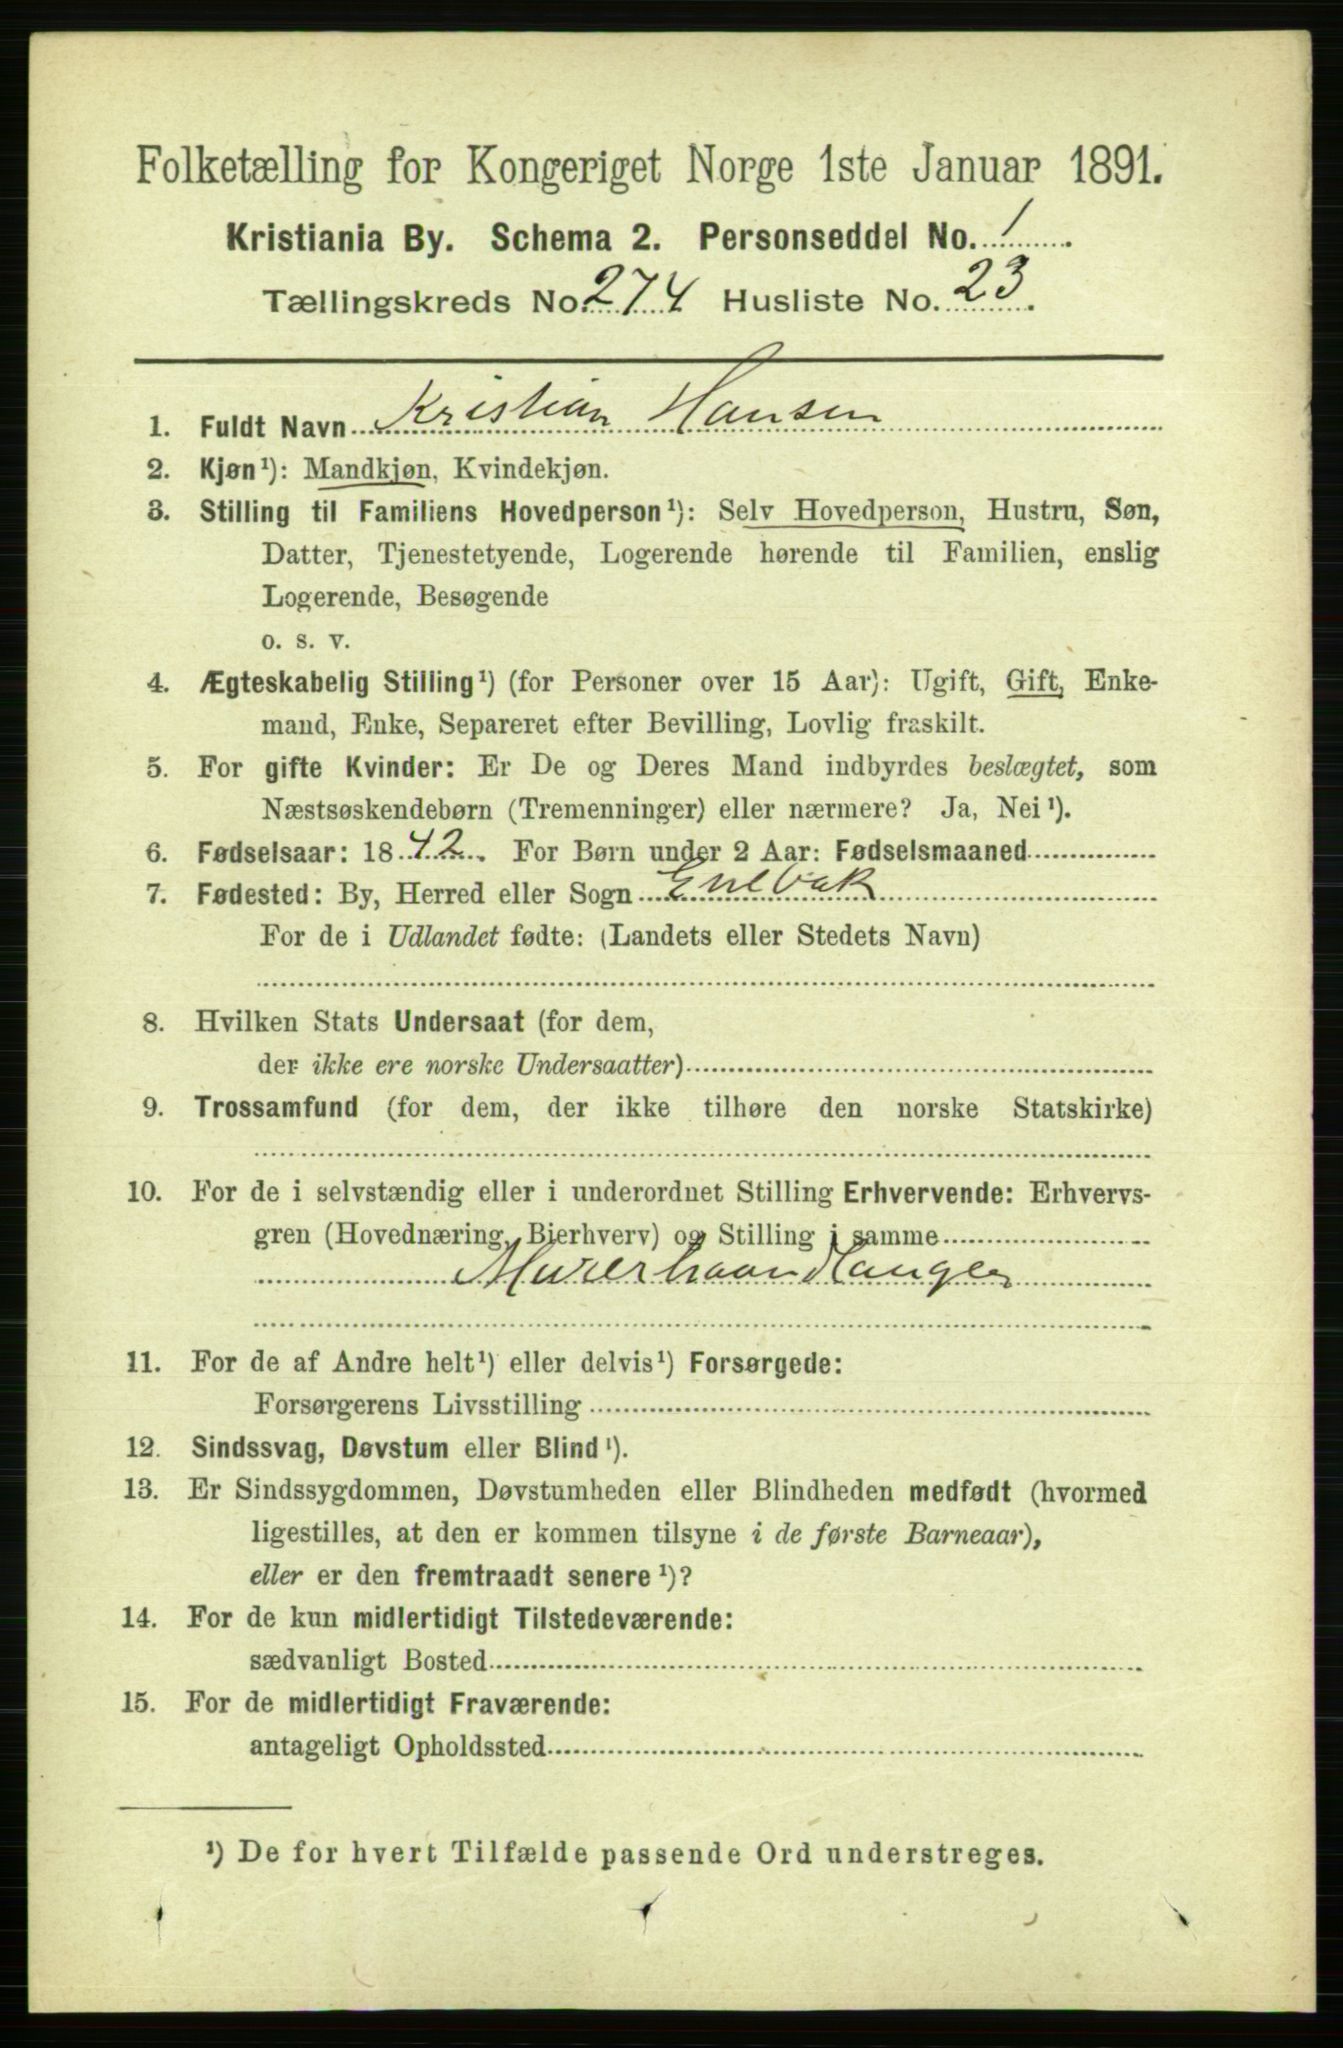 Folketælling for Kongeriget Norge 1ste Januar 1891.
Kristiania By. Schema 2. Personseddel No. 1
Tællingskreds No. 274 Husliste No. 23.
1. Fuldt Navn Kristian Hansen
2. Kjøn¹): Mandkjøn, Kvindekjøn.
3. Stilling til Familiens Hovedperson¹): Selv Hovedperson, Hustru, Søn,
Datter, Tjenestetyende, Logerende hørende til Familien, enslig
Logerende, Besøgende
o. s. v.
4. Ægteskabelig Stilling¹) (for Personer over 15 Aar): Ugift, Gift, Enke-
mand, Enke, Separeret efter Bevilling, Lovlig fraskilt.
5. For gifte Kvinder: Er De og Deres Mand indbyrdes beslægtet, som
Næstsøskendebørn (Tremenninger) eller nærmere? Ja, Nei¹).
6. Fødselsaar: 1842. For Børn under 2 Aar: Fødselsmaaned
7. Fødested: By, Herred eller Sogn Enebak
For de i Udlandet fødte: (Landets eller Stedets Navn)
8. Hvilken Stats Undersaat (for dem,
der ikke ere norske Undersaatter)
9. Trossamfund (for dem, der ikke tilhøre den norske Statskirke)
10. For de i selvstændig eller i underordnet Stilling Erhvervende: Erhvervs-
gren (Hovednæring, Bierhverv) og Stilling i samme
Murerhaandlanger
11. For de af Andre helt¹) eller delvis¹) Forsørgede:
Forsørgerens Livsstilling
12. Sindssvag, Døvstum eller Blind¹).
13. Er Sindssygdommen, Døvstumheden eller Blindheden medfødt (hvormed
ligestilles, at den er kommen tilsyne i de første Barneaar),
eller er den fremtraadt senere¹)?
14. For de kun midlertidigt Tilstedeværende:
sædvanligt Bosted
15. For de midlertidigt Fraværende:
antageligt Opholdssted
¹) De for hvert Tilfælde passende Ord understreges.